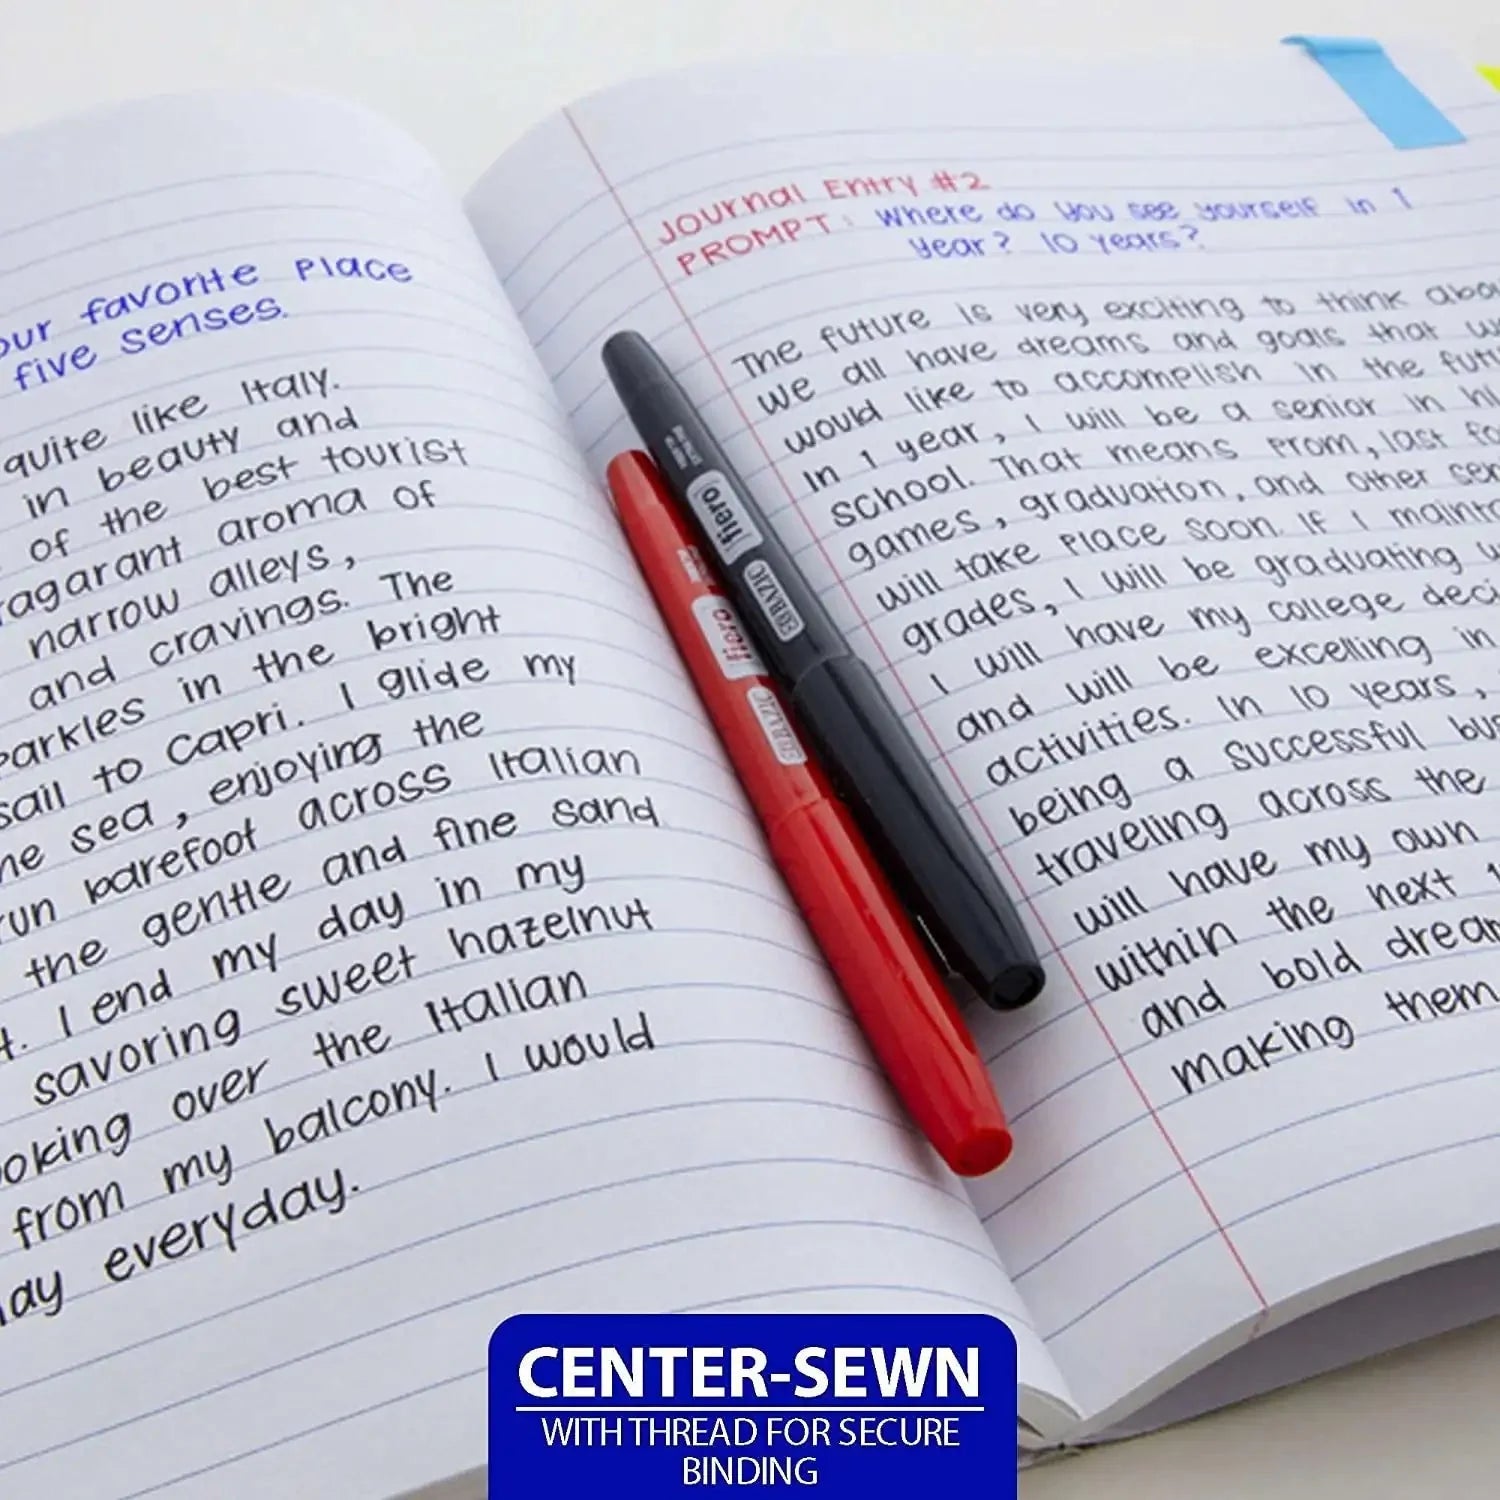 our favorite Place
five senses.
quite like Italy.
in beauty and
of the best tourist
ragarant aroma of
narrow alleys,
and cravings. The
parkles in the bright
sail to Capri. I glide my
he sea, enjoying the
run barefoot across Italian
the gentle and fine sand
t. I end my day in my
savoring sweet hazelnut
ooking over the Italian
from my balcony. I would
ay everyday.
Journal Entry #2
PROMPT: Where do you see yourself in 1
year? 10 years?
The future is very exciting to think abou
we all have dreams and goals that w
would like to accomplish in the futu
In 1 year, I will be a senior in hi
school. That means Prom, last fo
games, graduation, and other sen
will take place soon. If I mainta
grades, I will be graduating w
I will have my college deci
and will be excelling in
activities. In 10 years,
being a successful bus
traveling across the
will have my own
within the next 1
and bold drea
making them
fiero
ERRAZIC
fiero
ERRAZIC
CENTER-SEWN
WITH THREAD FOR SECURE
BINDING